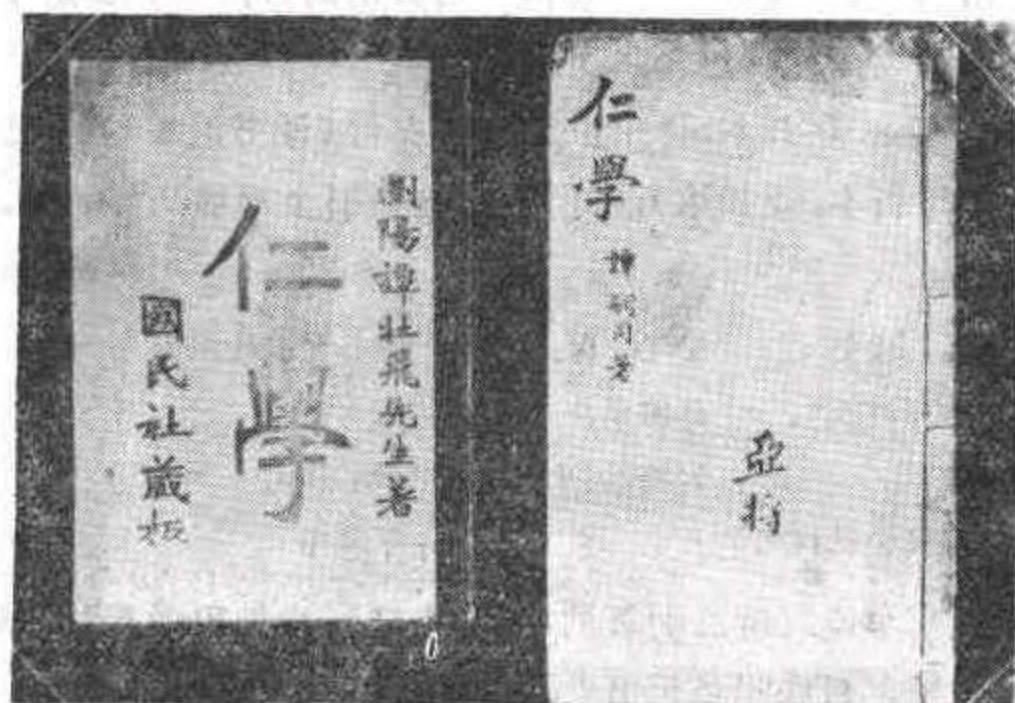 亞
仁學
譚嗣同著
瀏陽譚壯飛先生著
仁學
國民社藏板